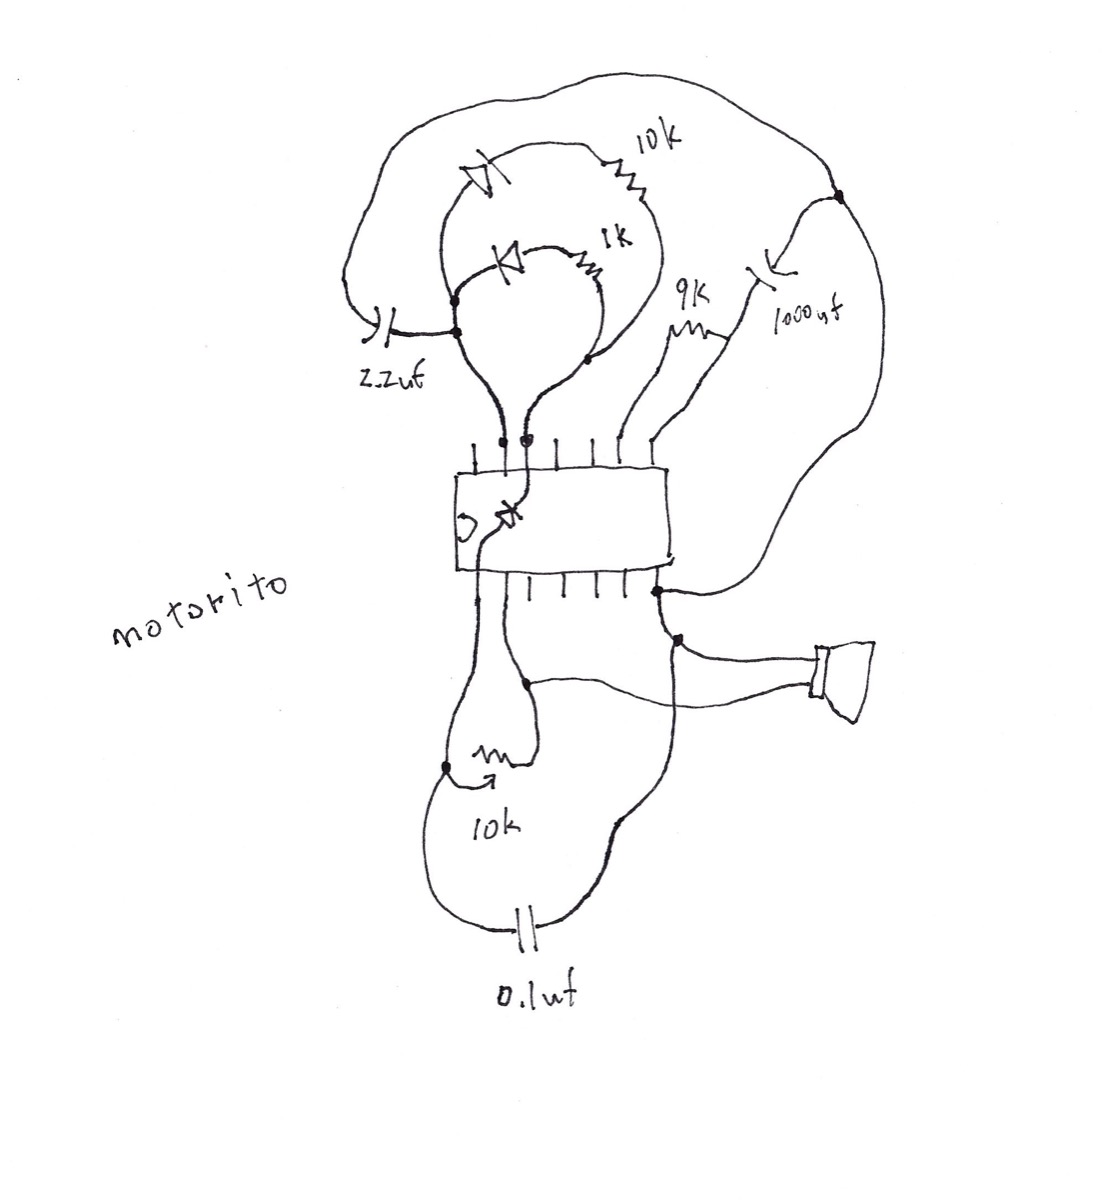 10k
1k
9k
1000uf
2.2uf
motorito
10k
0.1uf